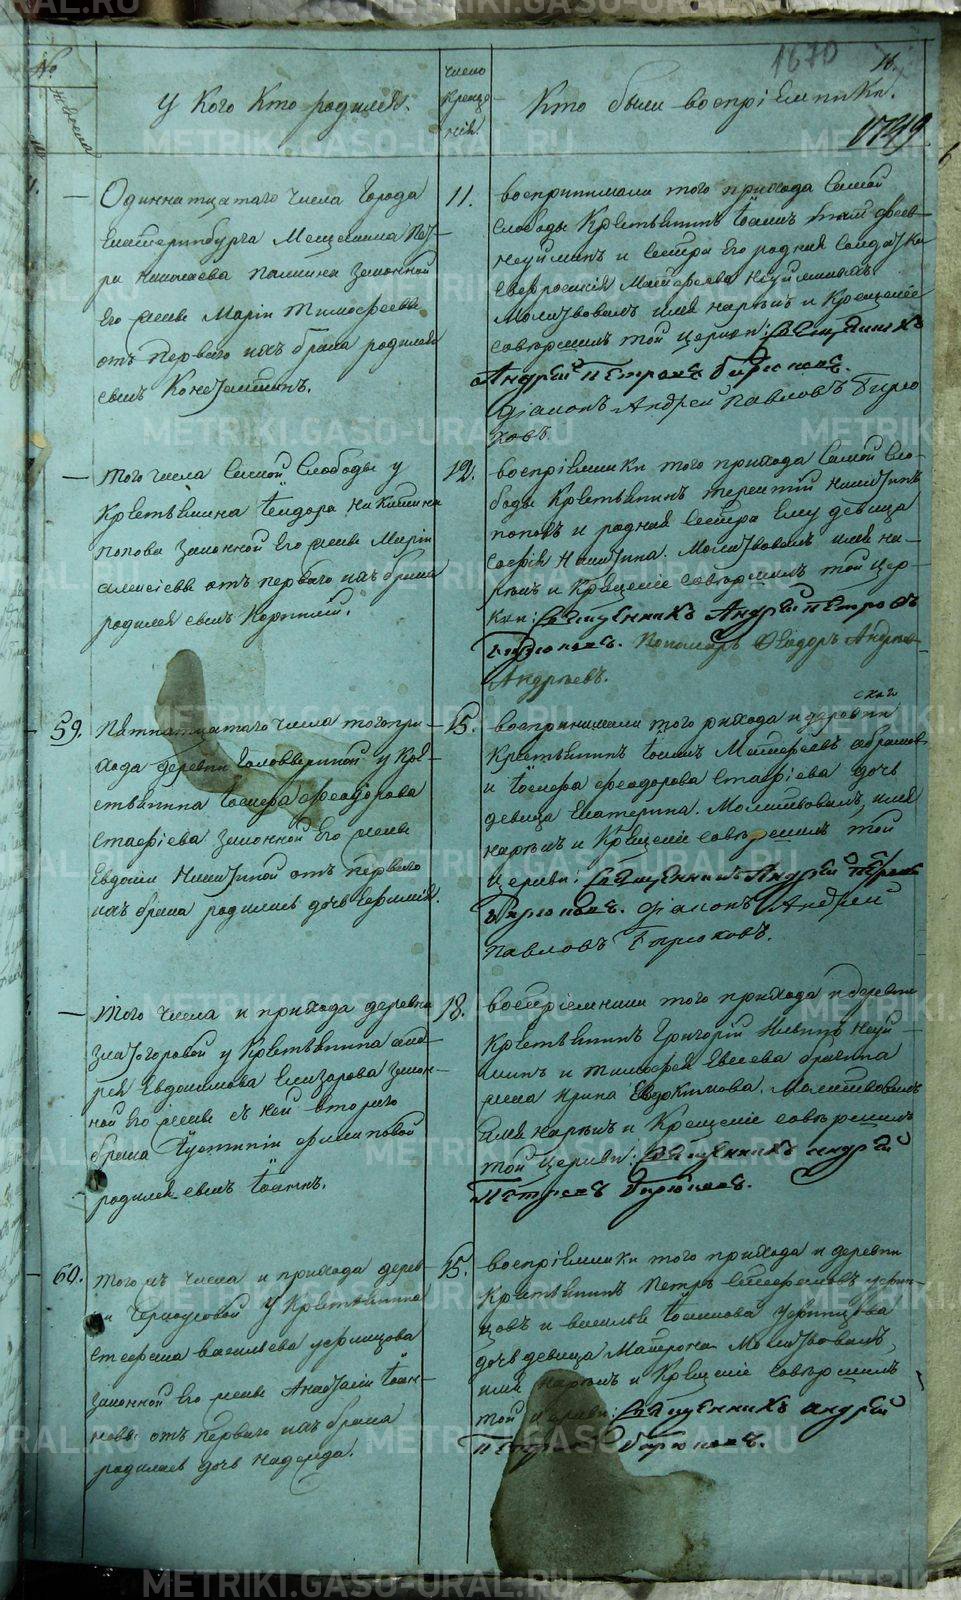 1870
11.
№
У кого кто родился.
число
крещє-
нія.
Кто были воспріемники.
11.
Одиннатцатаго числа Города
Екатеринбурга Мещанина Пет-
ра Николаева Пашина Законной
Его жене Маріи Тимофеевы
отъ перваго ихъ брака родился
сынъ Константинъ.
11.
воспринимали того прихода Самой
слободы Крестьянинъ Іоаннъ
и сестра Его родная Солдатка
Евфросинія Матфеева
Молитвовалъ имя нарекъ и Крещеніе
совершилъ той церкви: Священникъ
Андрей Петровъ Бирюковъ.
діаконъ Андрей Павловъ Бирю-
ковъ.
Того числа Самой Слободы у
Крестьянина Ѳеодора Никитина
попова Законной Его жене Маріи
Алексѣевы отъ перваго ихъ брака
родился сынъ Корнилій.
12.
воспріемники того прихода Самой Сло-
боды Крестьянинъ Терентій Никитинъ
поповъ и родная сестра Ему девица
Софія Никитина. Молитвовалъ имя на-
рекъ и Крещеніе совершилъ той цер-
кви: Священникъ Андрей Петровъ
Бирюковъ. Пономарь Ѳеодоръ Андре
Андреевъ.
59.
Пятнатцатаго числа того при-
хода деревни Головыриной у Кре-
стьянина Іосифа Феодорова
Стафіева Законной Его жене
Евдокіи Никитиной отъ перваго
ихъ брака родилась дочь Ефимія.
15.
воспринимали того прихода и деревни
Крестьянинъ Іоаннъ Матфеевъ Абрамов
и Іосифа Феодорова Стафіева дочь
девица Екатерина. Молитвовалъ, имя
нарекъ и Крещеніе совершилъ той
церкви: Священникъ Андрей Петровъ
Бирюковъ. діаконъ Андрей
Павловъ Бирюковъ.
Того числа и прихода деревни
Златогоровой у Крестьянина Анд-
рея Евдокимова Елизарова Закон-
ной Его жене съ ней втораго
брака Іустиніи Филиповой
родился сынъ Іоаннъ.
18.
воспріемники того прихода и деревни
Крестьянинъ Григорій
и Тимофея Евсеева
жена Ирина Евдокимова. Молитвовалъ
имя нарекъ и Крещеніе совершилъ
той церкви: Священникъ Андрей
Петровъ Бирюковъ.
60.
Того жъ числа и прихода дерев-
ни Черноусовой у Крестьянина
Стефана Васильева Уфимцова
Законной Его жене Анастасіи Іоан-
новы отъ перваго ихъ брака
родилась дочь Надежда.
15.
воспріемники того прихода и деревни
Крестьянинъ Петръ Стефановъ Уфим-
цовъ и Василья Іоаннова Уфимцова
дочь девица Матрона Молитвовалъ,
имя нарекъ и Крещеніе совершилъ
той церкви: Священникъ Андрей
Петровъ Бирюковъ.
METRIKI.GASO-URAL.RU